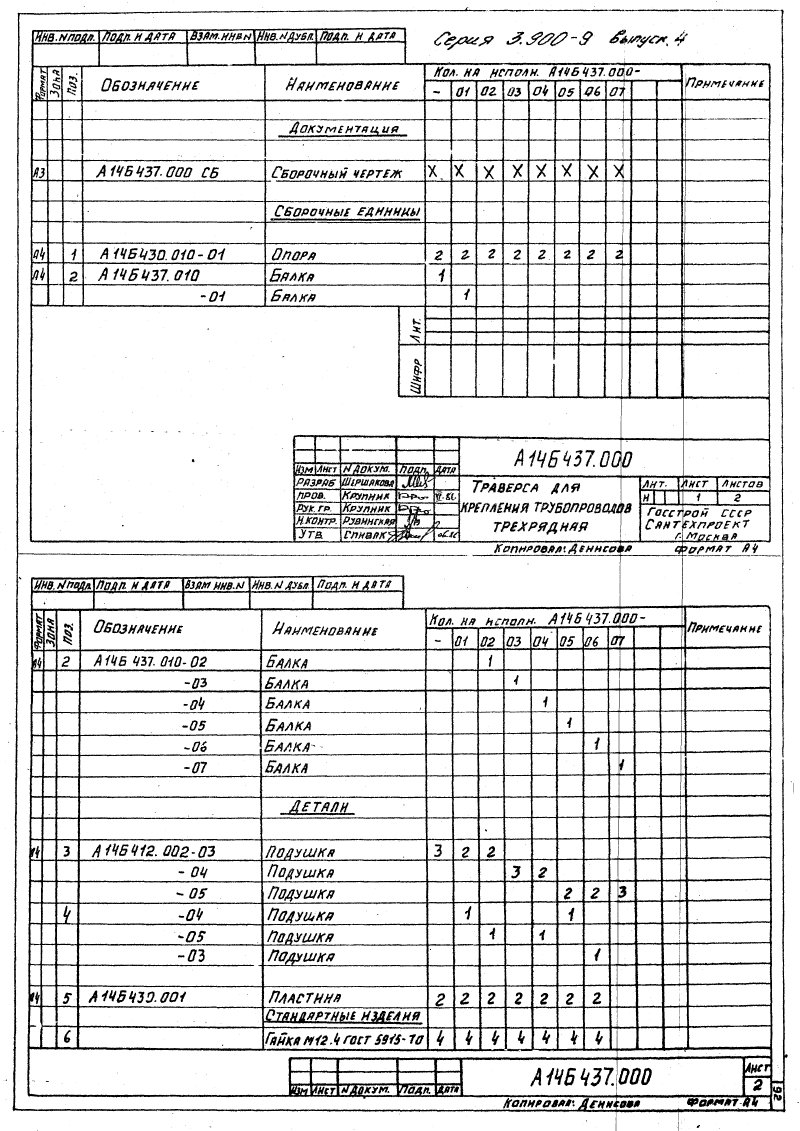 Серия 3.900-9 выпуск. 4
Инв. № подл. Подп. и дата Взам. инв. № Инв. № дубл. Подп. и дата
Формат Зона Поз. Обозначение Наименование Кол. на исполн. А14Б437.000- Примечание
- 01 02 03 04 05 06 07
Документация
А3 А14Б437.000 СБ Сборочный чертеж X X X X X X X X
Сборочные единицы
А4 1 А14Б430.010-01 Опора 2 2 2 2 2 2 2 2
А4 2 А14Б437.010 Балка 1
-01 Балка 1
Лит.
Шифр
А14Б437.000
Изм Лист № докум. Подп. Дата
Разраб Шершакова
Пров. Крупник
Рук. гр. Крупник
Н.контр. Рувинская
Утв Спивак
Траверса для
крепления трубопроводов
трехрядная
Лит. Лист Листов
И 1 2
Госстрой СССР
Сантехпроект
г. Москва
Копировал: Денисова Формат А4
Инв. № подл. Подп. и дата Взам. инв. № Инв. № дубл. Подп. и дата
Формат Зона Поз. Обозначение Наименование Кол. на исполн. А14Б437.000- Примечание
- 01 02 03 04 05 06 07
А4 2 А14Б 437.010-02 Балка 1
-03 Балка 1
-04 Балка 1
-05 Балка 1
-06 Балка 1
-07 Балка 1
Детали
А4 3 А14Б412.002-03 Подушка 3 2 2
-04 Подушка 3 2
-05 Подушка 2 2 3
4 -04 Подушка 1 1
-05 Подушка 1 1
-03 Подушка 1
А4 5 А14Б430.001 Пластина 2 2 2 2 2 2 2
Стандартные изделия
6 Гайка М12.4 ГОСТ 5915-70 4 4 4 4 4 4 4
Изм Лист № докум. Подп. Дата
А14Б437.000
Лист
2
Копировал: Денисова Формат А4
26